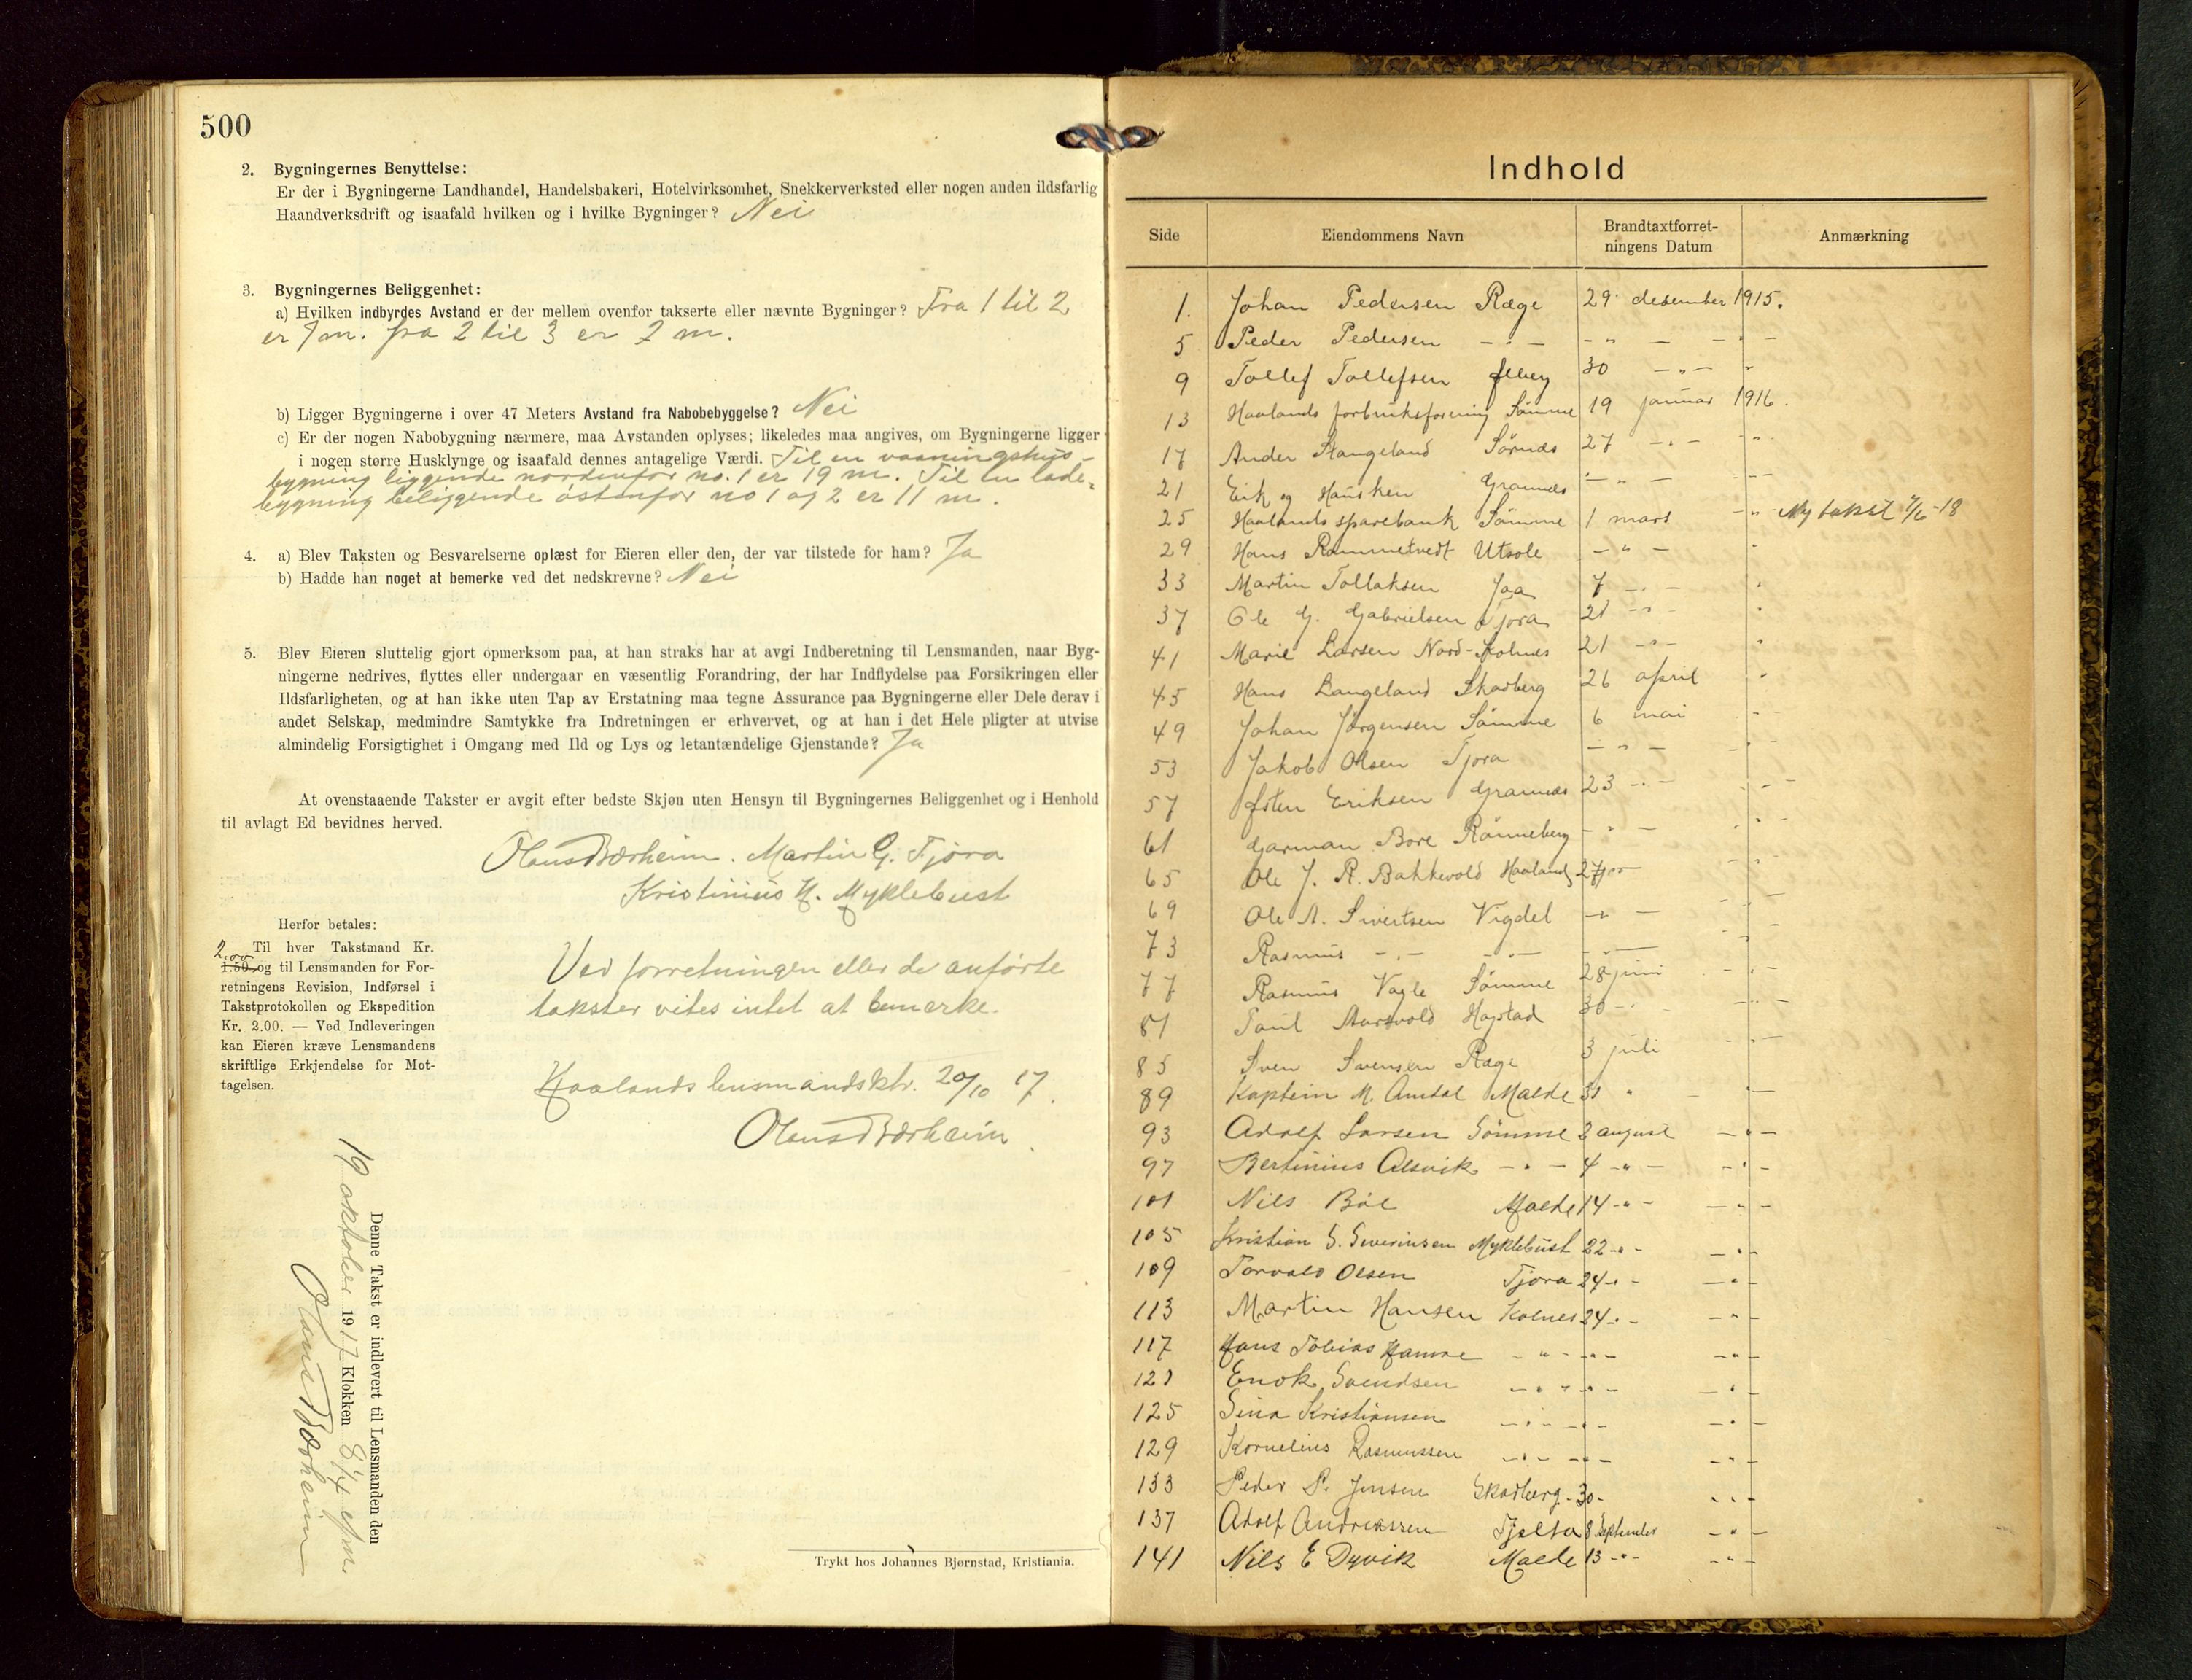 500
2. Bygningernes Benyttelse:
Er der i Bygningerne Landhandel, Handelsbakeri, Hotelvirksomhet, Snekkerverksted eller nogen anden ildsfarlig
Haandverksdrift og isaafald hvilken og i hvilke Bygninger? Nei
3. Bygningernes Beliggenhet:
a) Hvilken indbyrdes Avstand er der mellem ovenfor takserte eller nævnte Bygninger? Fra 1 til 2
er 7 m. fra 2 til 3 er 2 m.
b) Ligger Bygningerne i over 47 Meters Avstand fra Nabobebyggelse? Nei
c) Er der nogen Nabobygning nærmere, maa Avstanden oplyses; likeledes maa angives, om Bygningerne ligger
i nogen større Husklynge og isaafald dennes antagelige Værdi. Til en vaaningshus-
bygning liggende nordenfor no. 1 er 19 m. Til en lade-
bygning beliggende östenfor no 1 og 2 er 11 m.
4. a) Blev Taksten og Besvarelserne oplæst for Eieren eller den, der var tilstede for ham? Ja
b) Hadde han noget at bemerke ved det nedskrevne? Nei
5. Blev Eieren sluttelig gjort opmerksom paa, at han straks har at avgi Indberetning til Lensmanden, naar Byg-
ningerne nedrives, flyttes eller undergaar en væsentlig Forandring, der har Indflydelse paa Forsikringen eller
Ildsfarligheten, og at han ikke uten Tap av Erstatning maa tegne Assurance paa Bygningerne eller Dele derav i
andet Selskap, medmindre Samtykke fra Indretningen er erhvervet, og at han i det Hele pligter at utvise
almindelig Forsigtighet i Omgang med Ild og Lys og letantændelige Gjenstande? Ja
At ovenstaaende Takster er avgit efter bedste Skjøn uten Hensyn til Bygningernes Beliggenhet og i Henhold
til avlagt Ed bevidnes herved.
Olaus Bærheim. Martin G. Tjora
Kristinius H. Myklebust
Herfor betales:
2.00 Til hver Takstmand Kr.
1.50 og til Lensmanden for For-
retningens Revision, Indførsel i
Takstprotokollen og Ekspedition
Kr. 2.00. — Ved Indleveringen
kan Eieren kræve Lensmandens
skriftlige Erkjendelse for Mot-
tagelsen.
Ved forretningen eller de anförte
takster vites intet at bemerke.
Haalands lensmandsktr. 20/10 17.
Olaus Bærheim.
Denne Takst er indlevert til Lensmanden den
19 oktober 1917 Klokken 8 1/4 efm.
Olaus Bærheim
Trykt hos Johannes Bjørnstad, Kristiania.
Indhold
Side Eiendommens Navn Brandtaxtforret-ningens Datum Anmærkning
1. Johan Pedersen Ræge 29 desember 1915.
5 Peder Pedersen - " - - " - - " -
9 Tollef Tollefsen 30 - " - "
13 Haalands forbruksforening Sömme 19 januar 1916.
17 Ander Stangeland Sörnæs 27 - " - "
21 Eirik og Hausken Grannæs - " - - " -
25 Haalands sparebank Sömme 1 mars - " Ny takst 7/6-18
29 Hans Rommetvedt Utsole - " - "
33 Martin Tollaksen Jaa 7 - " - "
37 Ole G. Gabrielsen Tjora 21 - " - "
41 Marie Larsen Nord-Kolnes 21 - " - "
45 Hans Langeland Skadberg 26 april "
49 Johan Jörgensen Sömme 6 mai "
53 Jakob Olsen Tjora - " - - " -
57 Östen Eriksen Grannæs 23 - " - - " -
61 Garman Bore Rönneberg - " - - " -
65 Ole J. R. Bakkevold Haaland 27 juni - " -
69 Ole A. Sivertsen Vigdel - " - - " -
73 Rasmus - " - - " - - " - - " -
77 Rasmus Vagle Sömme 28 juni - " -
81 Paul Aarsvold Hogstad 30 - " - " -
85 Sven Svensen Ræge 3 juli - " -
89 Kaptein M. Amdal Malde 31 " - " -
93 Adolf Larsen Sömme 2 august - " -
97 Bertinius Alsvik - " - 4 - " - - " -
101 Nils Böe Malde 14 - " - - " -
105 Kristian S. Severinsen Myklebust 22 - " - - " -
109 Torvald Olsen Tjora 24 - " - - " -
113 Martin Hansen Kolnes 24 - " - - " -
117 Hans Tobias Hamre - " - - " - - " -
121 Enok Svendsen - " - - " - - " -
125 Sina Kristiansen - " - - " - - " -
129 Kornelius Rasmussen - " - - " - - " -
133 Peder P. Jensen Skadberg - 30 - - " -
137 Adolf Andreassen Tjelta 8 September - " -
141 Nils E Dyvik Malde 13 - " - - " -